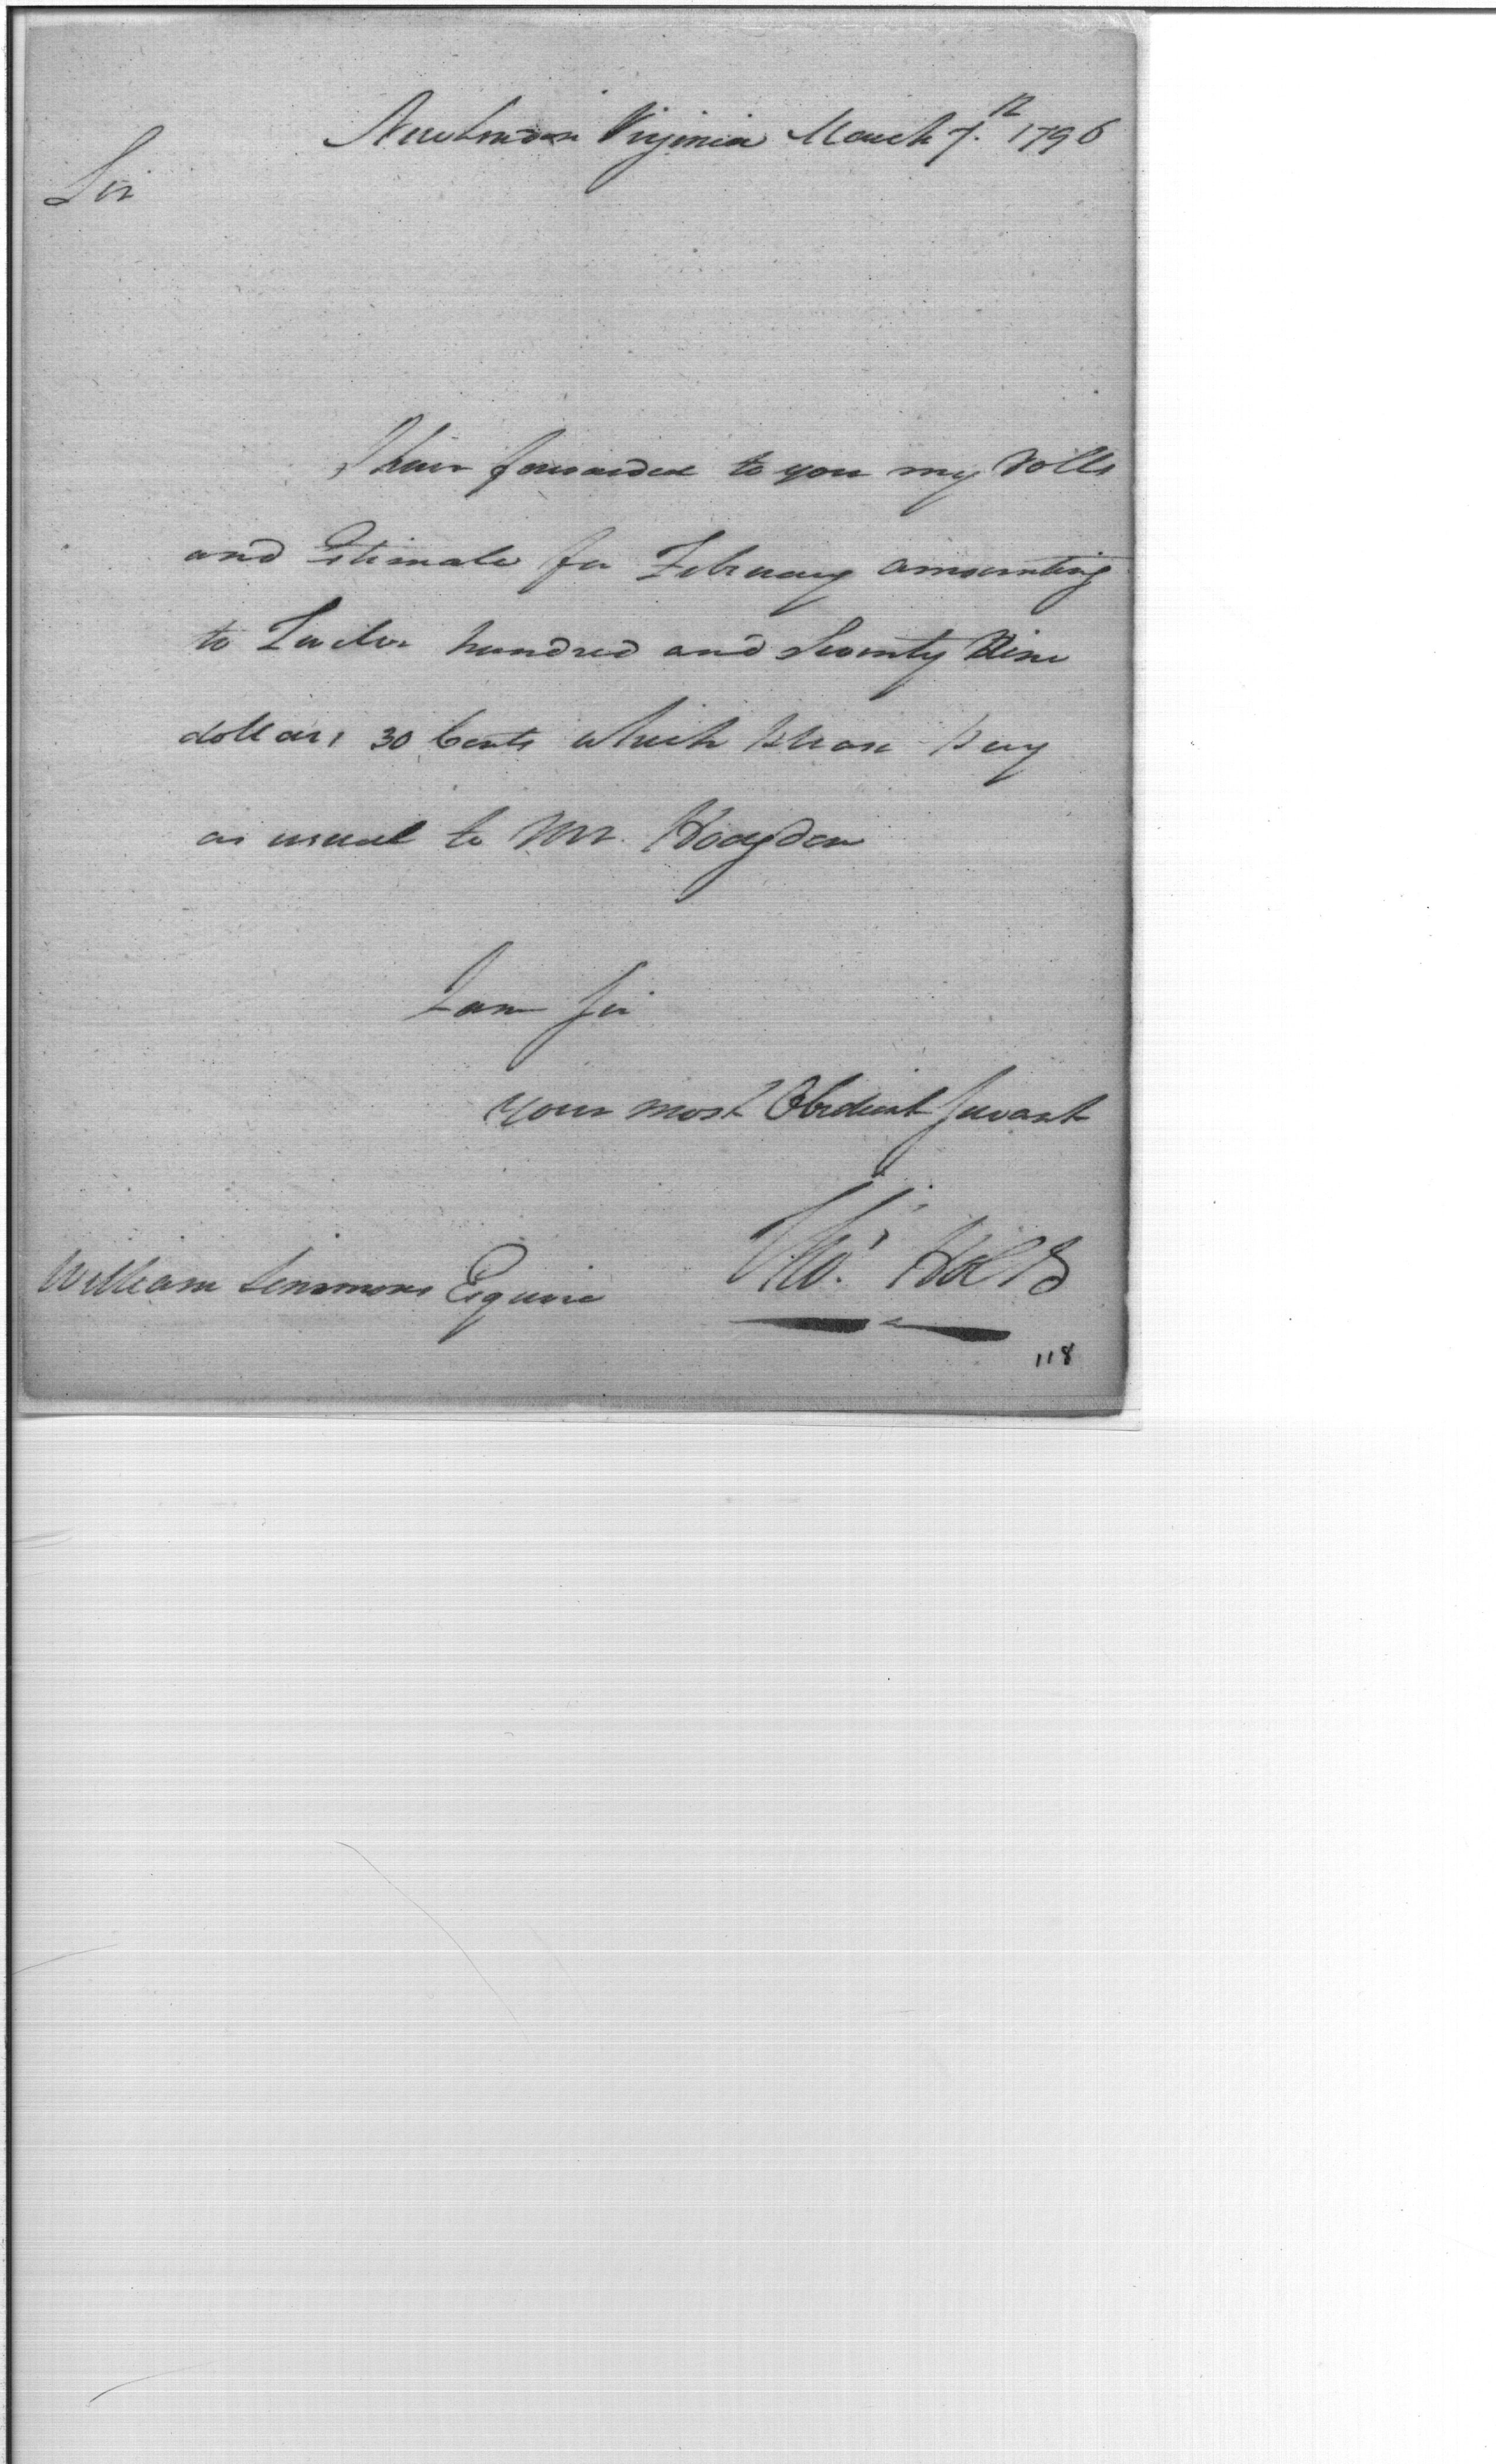 New London Virginia March 7.th 1796
Sir
I have forwarded to you my Rolls
and Estimate for February amounting
to Twelve hundred and Seventy Nine
dollars 30 Cents which please pay
as usual to Mr. Hodgdon
I am Sir
your most Obedient Servant
Tho.s Holt
William Simmons Esquire
118